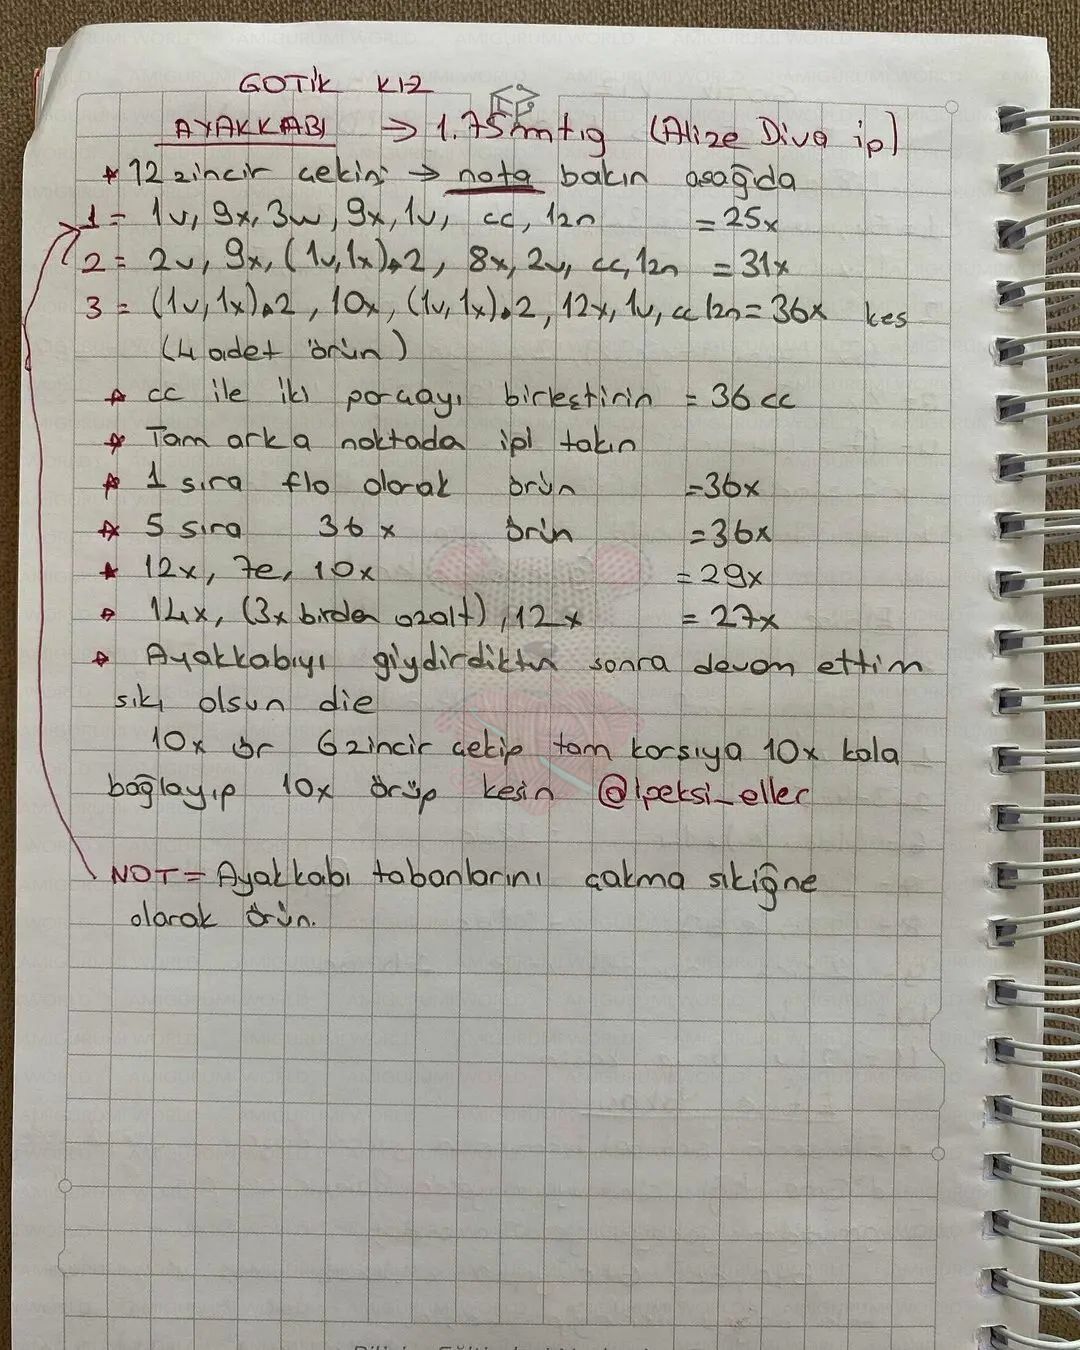 GOTİK KIZ
AYAKKABI → 1.75mtıg (Alize Diva ip)
* 12 zincir çekin → nota bakın aşağıda
1 = 1v, 9x, 3w, 9x, 1v, cc, 1zn = 25x
2 = 2v, 9x, (1v,1x)*2, 8x, 2v, cc, 1zn = 31x
3 = (1v,1x)*2, 10x, (1v,1x)*2, 12x, 1v, cc 1zn = 36x kes
(4 adet örün)
* cc ile iki parçayı birleştirin = 36 cc
* Tam arka noktada ipi takın
* 1 sıra flo olarak örün =36x
* 5 sıra 36x örün =36x
* 12x, 7e, 10x = 29x
* 14x, (3x birden azalt), 12x = 27x
* Ayakkabıyı giydirdiktn sonra devam ettim
sıkı olsun die
10x ör 6 zincir çekip tam karşıya 10x kala
bağlayıp 10x örüp kesin @ipeksi_eller
NOT = Ayakkabı tabanlarını çakma sıkiğne
olarak örün.
AMIGURUMI WORLD